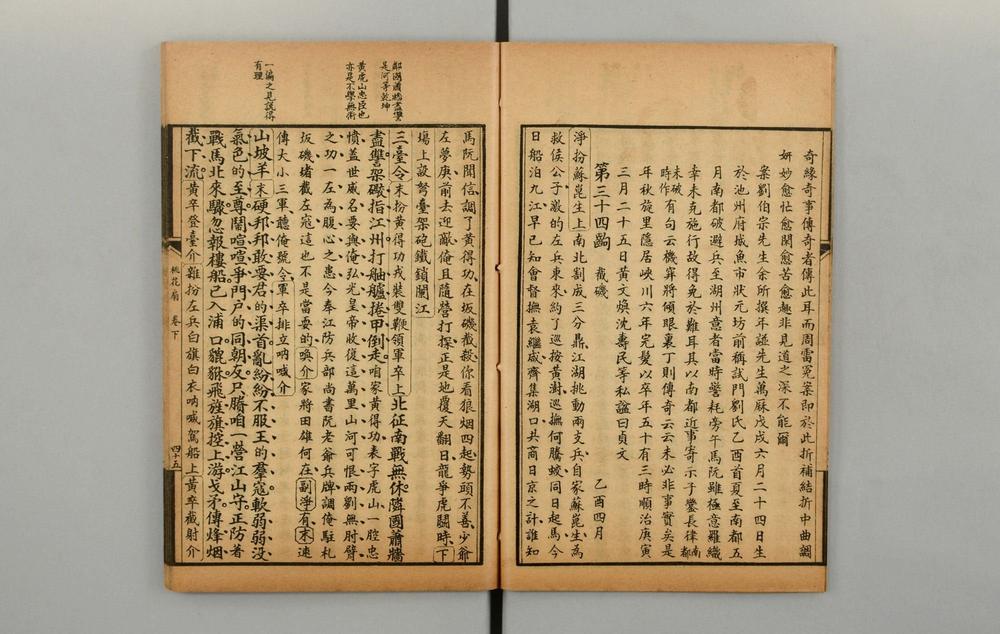 奇緣奇事傳奇者傳此耳而周雷冤案即於此折補結折中曲調
妍妙愈忙愈閒愈苦愈趣非見道之深不能爾
案劉伯宗先生余所撰年譜先生萬厤戊戌六月二十四日生
於池州府城魚市狀元坊前稱試門劉氏乙酉首夏至南都五
月南都破避兵至湖州意者當時警耗旁午馬阮雖極意羅織
幸未克施行故得免於難耳其以南都近事寄示子鑾長律南都
未破時作有句云機穽將傾眼裏丁則傳奇云云未必非事實矣是
年秋旋里隱居峽川六年完髮以卒年五十有三時順治庚寅
三月二十五日黃文煥沈壽民等私諡曰貞文
第三十四齣 截磯 乙酉四月
淨扮蘇崑生上南北割成三分鼎江湖挑動兩支兵自家蘇崑生為
救侯公子激的左兵東來約了巡按黃澍巡撫何騰蛟同日起馬今
日船泊九江早已知會督撫袁繼咸齊集湖口共商日京之計誰知
馬阮聞信調了黃得功在坂磯截殺你看狼烟四起勢頭不善少爺
左夢庚前去迎敵俺且隨營打探正是地覆天翻日龍爭虎鬭時下
塲上設弩臺架砲鐵鎖闌江
三臺令末扮黃得功戎裝雙鞭領軍卒上北征南戰無休隣國蕭牆
盡讐架礮指江州打舳艫捲甲倒走咱家黃得功表字虎山一腔忠
憤蓋世威名要與俺弘光皇帝收復這萬里山河可恨兩劉無肘臂
之功一左為腹心之患今奉江防兵部尚書阮老爺兵牌調俺駐札
坂磯堵截左寇這也不是當耍的喚介家將田雄何在副淨有末速
傳大小三軍聽俺號令軍卒排立吶喊介
山坡羊末硬邦邦敢要君的渠首亂紛紛不服王的羣寇軟弱弱没
氣色的至尊鬧喧喧爭門户的同朝友只賸咱一營江山守正防着
戰馬北來驟忽報樓船已入浦口貔貅飛旌旗控上游戈矛傳烽烟
截下流黃卒登臺介雜扮左兵白旗白衣吶喊駕船上黃卒截射介
鄰國舊牆盡讐是何等乾坤
黃虎山忠臣也亦是不學無術
一偏之見說得有理
桃花扇 卷下
四十五